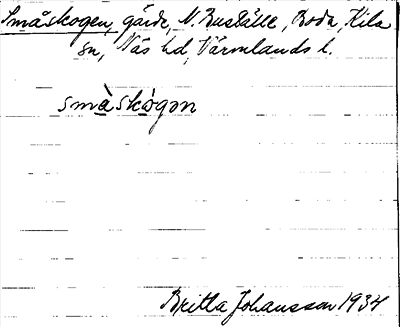 Småskogen, gärde, N. Buskälle, Boda, Kila
sn, Näs hd, Värmlands l.
småskógọn
Britta Johansson 1934